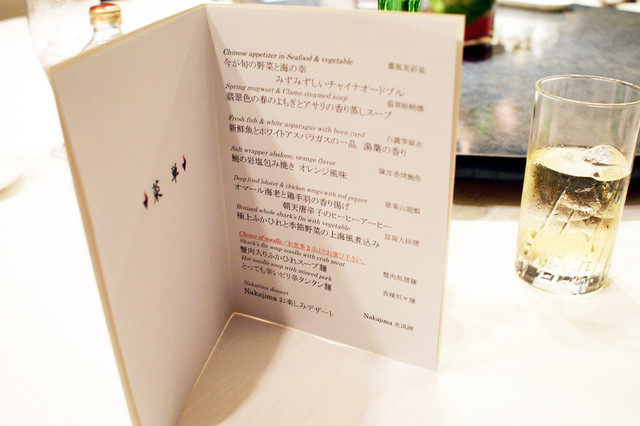 菜單
Chinese appetizer in Seafood & vegetable
今が旬の野菜と海の幸
みずみずしいチャイナオードブル
Spring mugwort & Clams steamed soup
翡翠色の春のよもぎとアサリの香り蒸しスープ
Fresh fish & white asparagus with bean card
新鮮魚とホワイトアスパラガスの一品 湯葉の香り
Salt wrapper abalone, orange flavor
鮑の岩塩包み焼き オレンジ風味 陳皮香烤鮑魚
Deep fried lobster & chicken wings with red pepper
オマール海老と鶏手羽の香り揚げ
朝天唐辛子のヒーヒーアーヒー
Braised whole shark's fin with vegetable
極上ふかひれと季節野菜の上海風煮込み
Choose of noodle／お食事はお選び下さい
Shark's fin soup noodle with crab meat
蟹肉入りふかひれスープ麺 蟹肉魚翅麵
Hot noodle soup with minced pork
とっても辛いピリ辛タンタン麺
Nakajima dessert
Nakajima お楽しみデザート Nakajima 氷淇淋